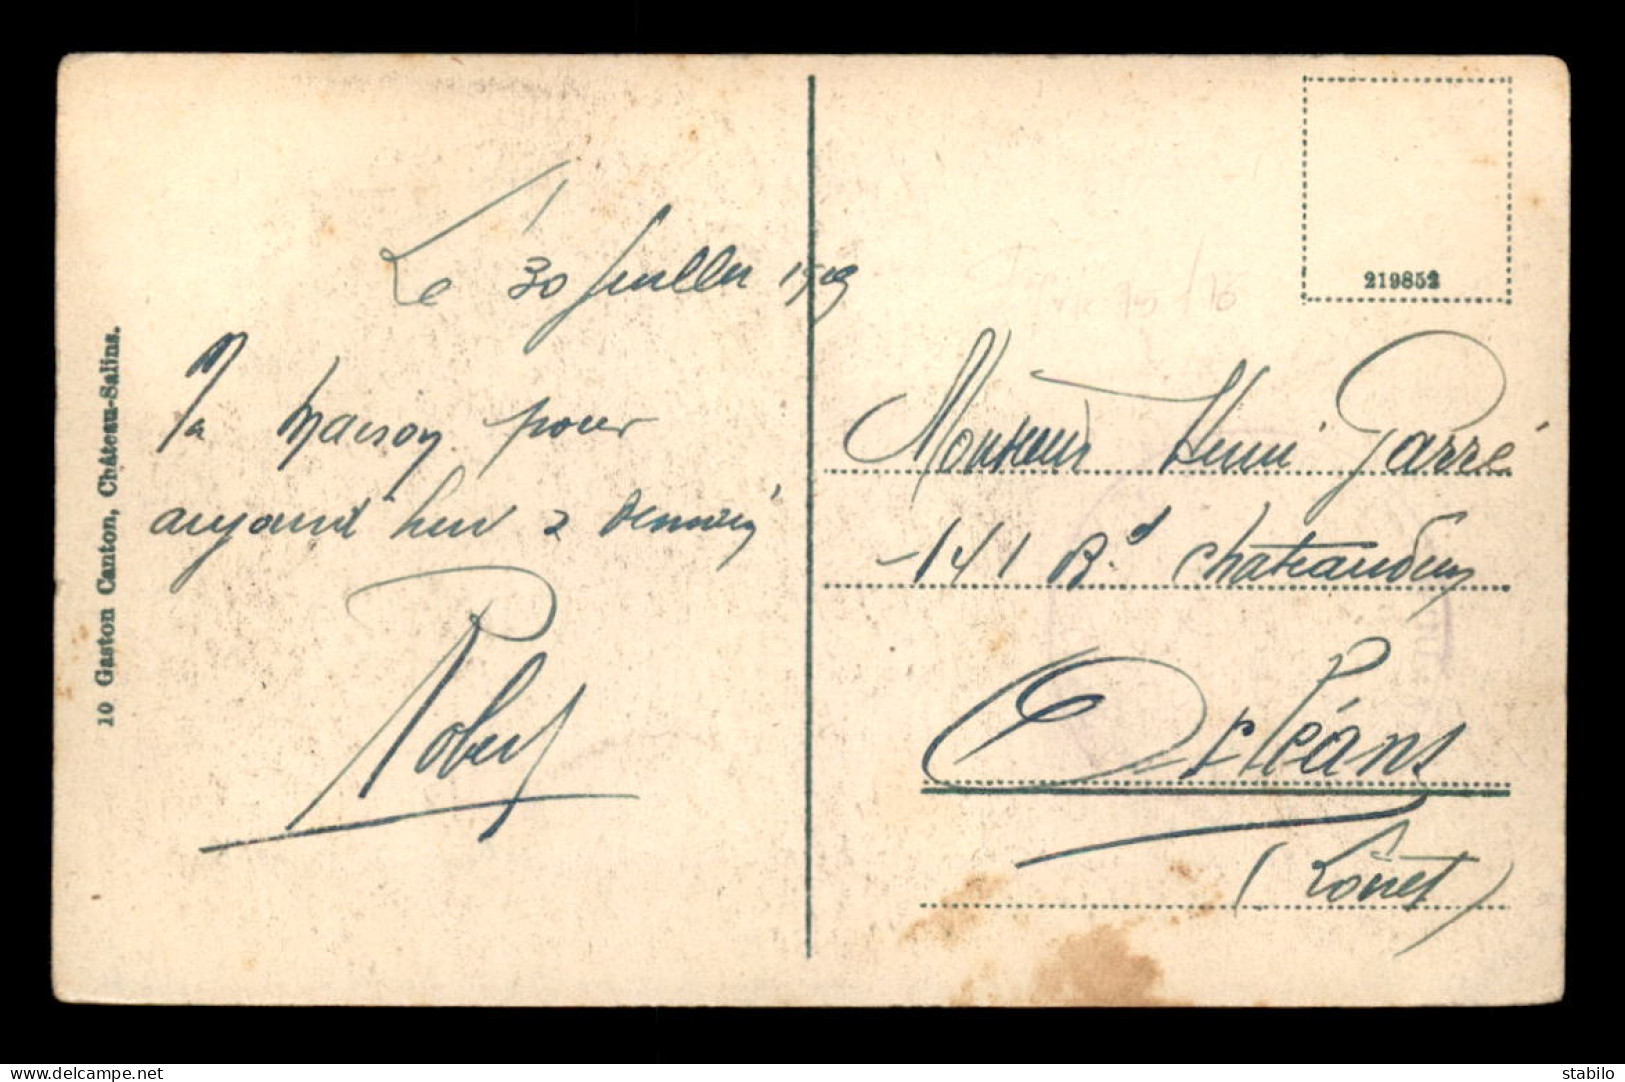 Le 30 Juillet 1919
Ma maison pour
aujourd'hui & demain
Robert
10 Gaston Canton, Château-Salins.
219852
Monsieur Henri Garré
141 Bd Chateaudun
Orléans
(Loiret)
delcampe.net
stabilo